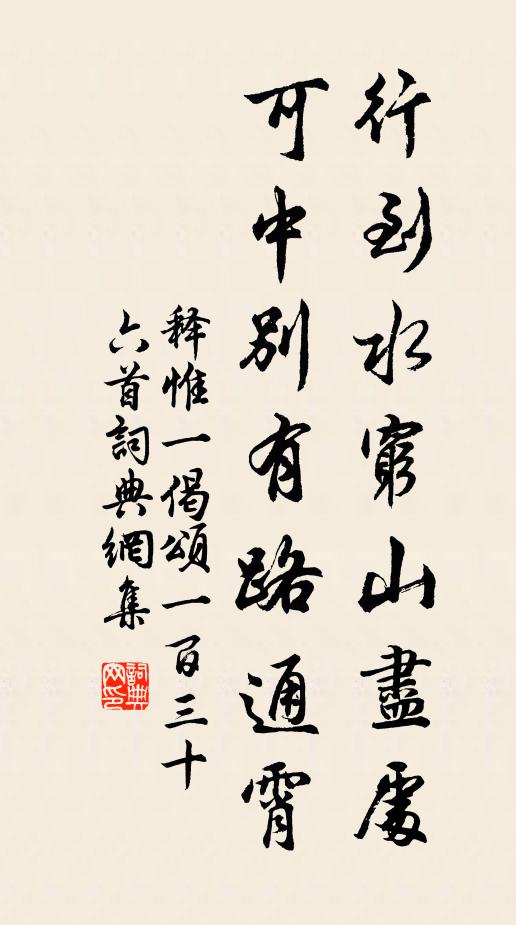 行到水窮山盡處
可中別有路通霄
釋惟一偈頌一百三十
六首詞典網集
詞典網印